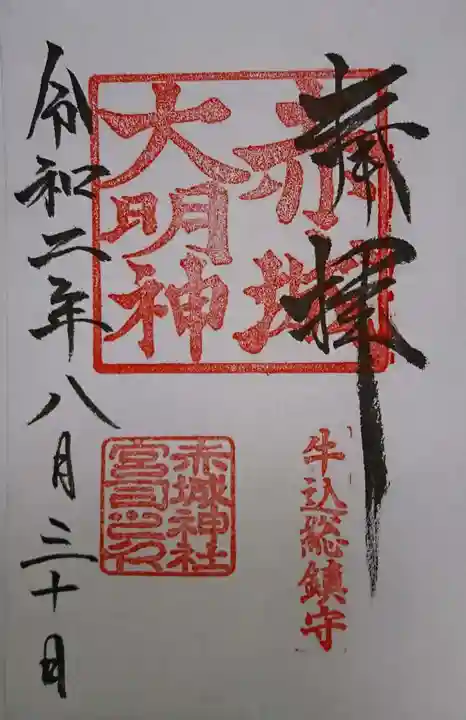 奉拝
赤城
大明神
牛込総鎮守
赤城神社
宮司之印
令和二年八月三十日